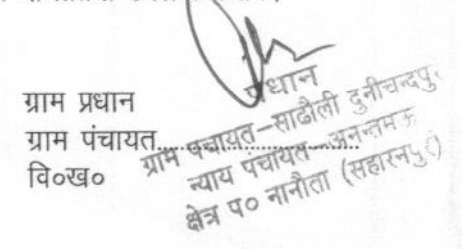 ग्राम प्रधान
ग्राम पंचायत....................
वि०ख०
प्रधान
ग्राम पंचायत-साढौली दुनीचन्दपुर
न्याय पंचायत-
क्षेत्र प० नानौता (सहारनपुर)